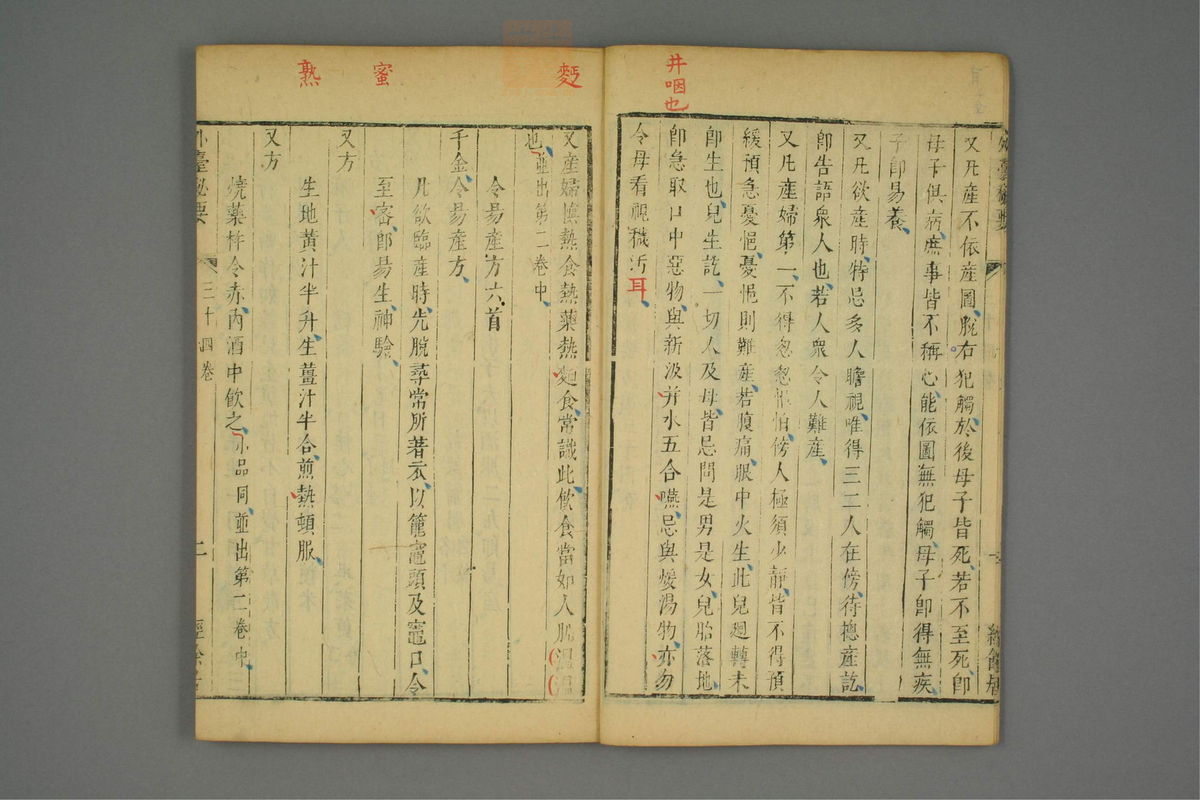 井咽也
外臺祕要
經餘居
又凡產不依產圖脫右犯觸於後母子皆死若不至死即
母子俱病庶事皆不稱心能依圖無犯觸母子即得無疾
子即易養
又凡欲產時特忌多人瞻視唯得三二人在傍待摠產訖
即告語衆人也若人衆令人難產
又凡產婦第一不得忽忽惧怕傍人極須少靜皆不得預
緩預急憂悒憂悒則難產若腹痛眼中火生此兒廻轉未
即生也兒生訖一切人及母皆忌問是男是女兒胎落地
即急取口中惡物與新汲井水五合嚥忌與煖湯物亦勿
令母看視穢汚耳
麪
蜜
熟
又產婦慎熱食熱藥熱麪食常識此飲食當如人肌溫溫
也並出第二卷中
令易產方六首
千金令易產方
凡欲臨產時先脫尋常所著衣以籠竈頭及竈口令
至密即易生神驗
又方
生地黃汁半升生薑汁半合煎熱頓服
又方
燒藥杵令赤內酒中飲之小品同並出第二卷中
外臺祕要
三十四卷
二
經餘居